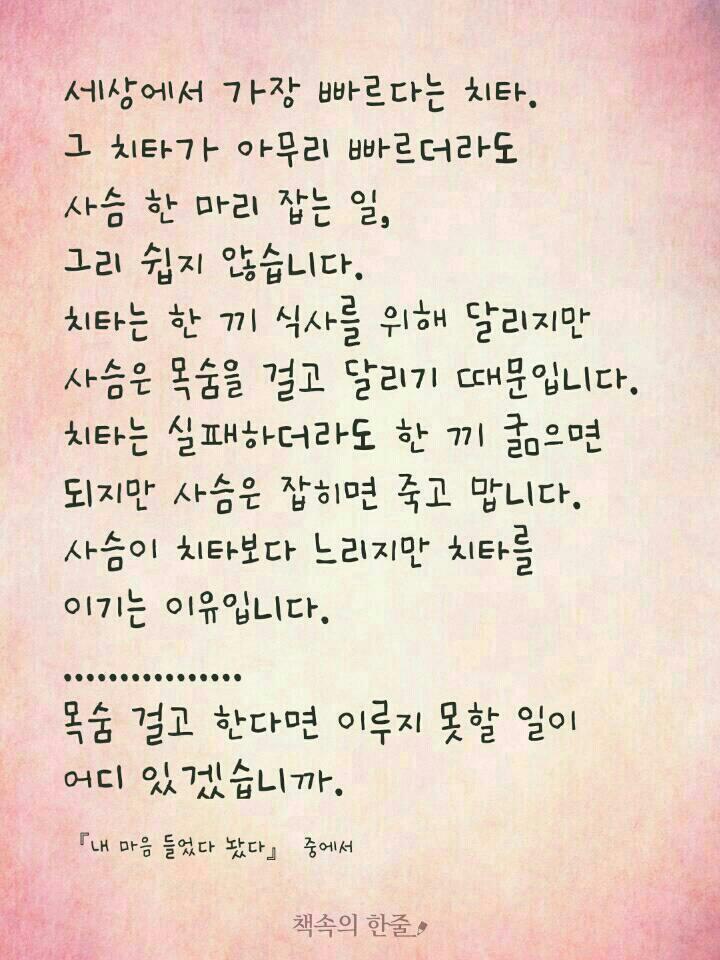 세상에서 가장 빠르다는 치타.
그 치타가 아무리 빠르더라도
사슴 한 마리 잡는 일,
그리 쉽지 않습니다.
치타는 한 끼 식사를 위해 달리지만
사슴은 목숨을 걸고 달리기 때문입니다.
치타는 실패하더라도 한 끼 굶으면
되지만 사슴은 잡히면 죽고 맙니다.
사슴이 치타보다 느리지만 치타를
이기는 이유입니다.
................
목숨 걸고 한다면 이루지 못할 일이
어디 있겠습니까.
『내 마음 들었다 놨다』 중에서
책속의 한줄